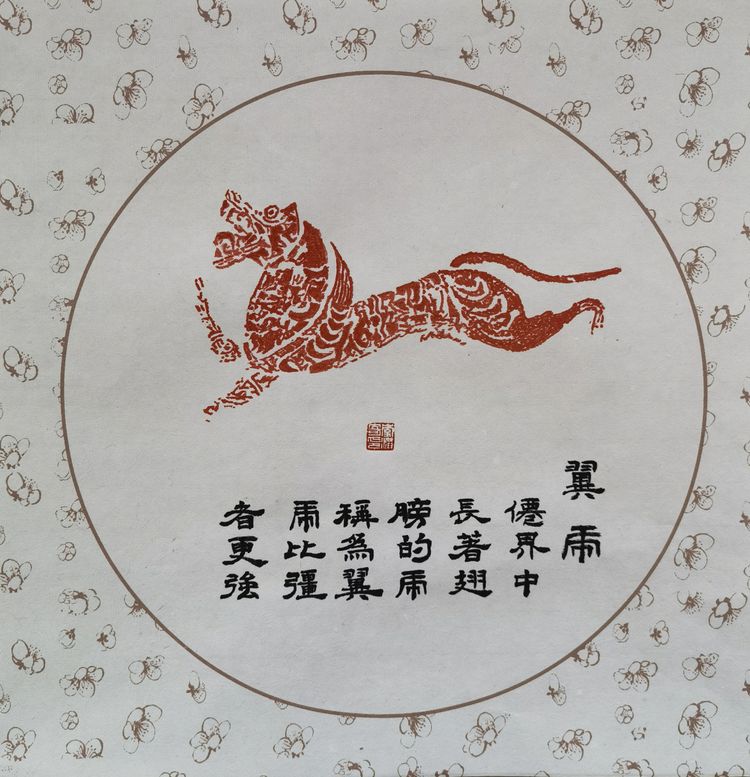 翼虎
僊界中
長著翅
膀的虎
稱為翼
虎比彊
者更強